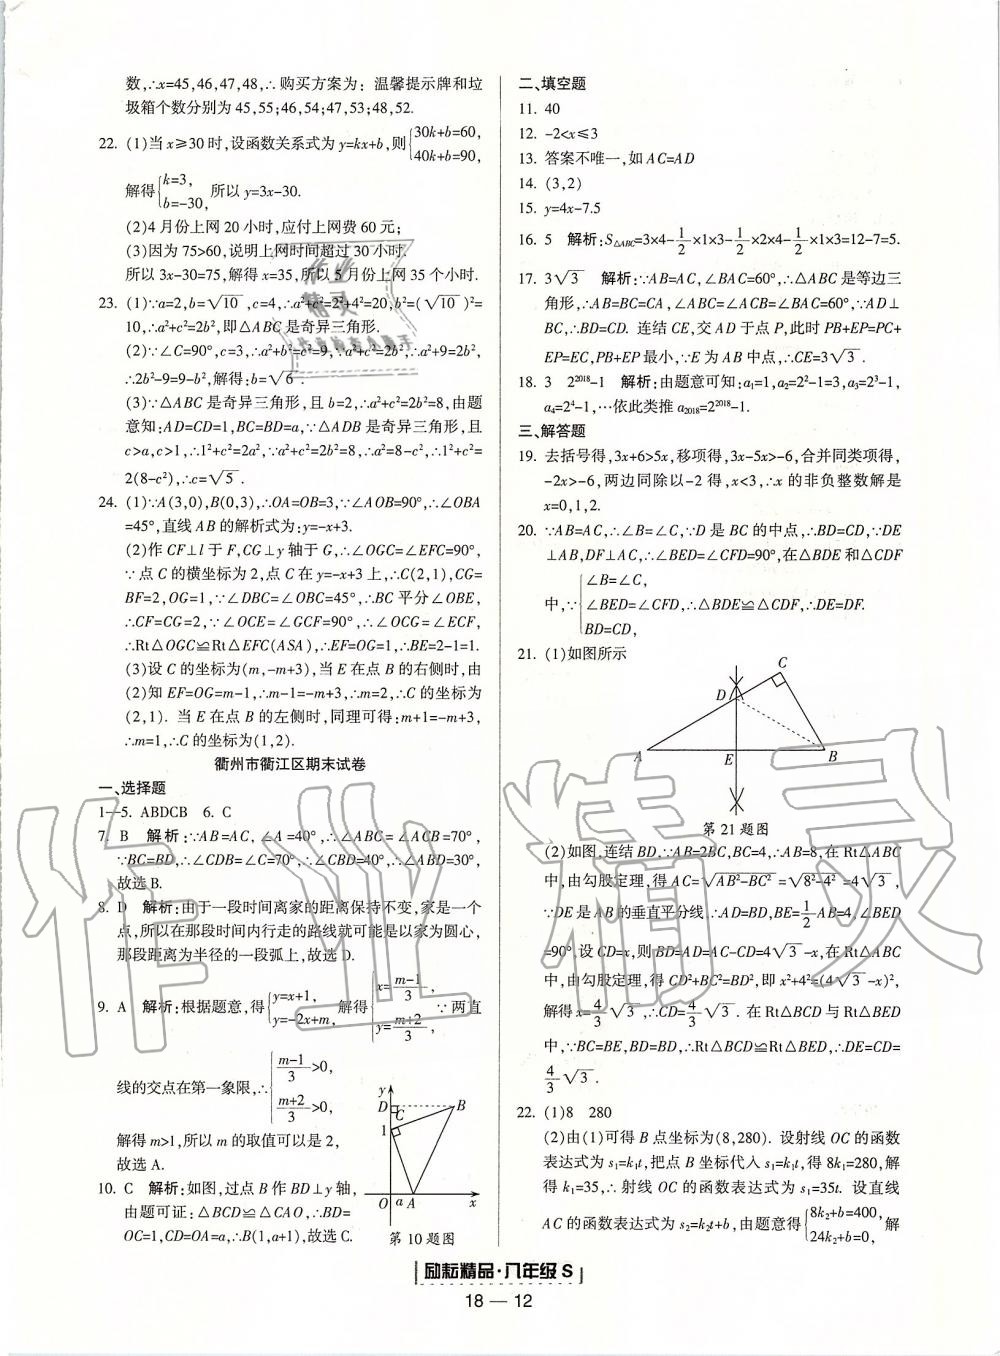 数,∴x=45,46,47,48,∴购买方案为：温馨提示牌和垃
圾箱个数分别为45,55;46,54;47,53;48,52.
22. (1)当x≥30时,设函数关系式为y=kx+b,则{30k+b=60,
40k+b=90,
解得{k=3,
b=-30,
所以y=3x-30.
(2)4月份上网20小时,应付上网费60元;
(3)因为75>60,说明上网时间超过30小时.
所以3x-30=75,解得x=35,所以5月份上网35个小时.
23. (1)∵a=2,b=√10,c=4,∴a²+c²=2²+4²=20,b²=(√10)²=
10,∴a²+c²=2b²,即△ABC是奇异三角形.
(2)∵∠C=90°,c=3,∴a²+b²=c²=9,∵a²+c²=2b²,∴a²+9=2b²,
∴2b²-9=9-b²,解得:b=√6.
(3)∵△ABC是奇异三角形,且b=2,∴a²+c²=2b²=8,由题
意知:AD=CD=1,BC=BD=a,∵△ADB是奇异三角形,且
c>a,c>1,∴1²+c²=2a²,∵a²+c²=2b²=8,∴a²=8-c²,∴1²+c²=
2(8-c²),∴c=√5.
24. (1)∵A(3,0),B(0,3),∴OA=OB=3,∵∠AOB=90°,∴∠OBA
=45°,直线AB的解析式为:y=-x+3.
(2)作CF⊥l于F,CG⊥y轴于G,∴∠OGC=∠EFC=90°,
∵点C的横坐标为2,点C在y=-x+3上,∴C(2,1),CG=
BF=2,OG=1,∵∠DBC=∠OBC=45°,∴BC平分∠OBE,
∴CF=CG=2,∵∠OCE=∠GCF=90°,∴∠OCG=∠ECF,
∴Rt△OGC≌Rt△EFC(ASA),∴EF=OG=1,∴BE=2-1=1.
(3)设C的坐标为(m,-m+3),当E在点B的右侧时,由
(2)知EF=OG=m-1,∴m-1=-m+3,∴m=2,∴C的坐标为
(2,1). 当E在点B的左侧时,同理可得:m+1=-m+3,
∴m=1,∴C的坐标为(1,2).
衢州市衢江区期末试卷
一、选择题
1—5. ABDCB 6. C
7. B 解析:∵AB=AC,∠A=40°,∴∠ABC=∠ACB=70°,
∵BC=BD,∴∠CDB=∠C=70°,∴∠CBD=40°,∴∠ABD=30°,
故选B.
8. D 解析:由于一段时间离家的距离保持不变,家是一个
点,所以在那段时间内行走的路线就可能是以家为圆心,
那段距离为半径的一段弧上,故选D.
9. A 解析:根据题意,得{y=x+1,
y=-2x+m,
解得{x=(m-1)/3,
y=(m+2)/3,
∵两直
线的交点在第一象限,∴{(m-1)/3>0,
(m+2)/3>0,
解得m>1,所以m的取值可以是2,
故选A.
10. C 解析:如图,过点B作BD⊥y轴,
由题可证:△BCD≌△CAO,∴BD=
OC=1,CD=OA=a,∴B(1,a+1),故选C.
y
D
C
B
1
O a A x
第10题图
二、填空题
11. 40
12. -2<x≤3
13. 答案不唯一,如AC=AD
14. (3,2)
15. y=4x-7.5
16. 5 解析:S△ABC=3×4-1/2×1×3-1/2×2×4-1/2×1×3=12-7=5.
17. 3√3 解析:∵AB=AC,∠BAC=60°,∴△ABC是等边三
角形,∴AB=BC=CA,∠ABC=∠ACB=∠BAC=60°,∵AD⊥
BC,∴BD=CD. 连结CE,交AD于点P,此时PB+EP=PC+
EP=EC,PB+EP最小,∵E为AB中点,∴CE=3√3.
18. 3 2²⁰¹⁸-1 解析:由题意可知:a₁=1,a₂=2²-1=3,a₃=2³-1,
a₄=2⁴-1,…依此类推a₂₀₁₈=2²⁰¹⁸-1.
三、解答题
19. 去括号得,3x+6>5x,移项得,3x-5x>-6,合并同类项得,
-2x>-6,两边同除以-2得,x<3,∴x的非负整数解是
x=0,1,2.
20. ∵AB=AC,∴∠B=∠C,∵D是BC的中点,∴BD=CD,∵DE
⊥AB,DF⊥AC,∴∠BED=∠CFD=90°,在△BDE和△CDF
中,∵{∠B=∠C,
∠BED=∠CFD,
BD=CD,
∴△BDE≌△CDF,∴DE=DF.
21. (1)如图所示
C
D
A E B
第21题图
(2)如图,连结BD,∵AB=2BC,BC=4,∴AB=8,在Rt△ABC
中,由勾股定理,得AC=√AB²-BC²=√8²-4²=4√3,
∵DE是AB的垂直平分线,∴AD=BD,BE=1/2AB=4,∠BED
=90°,设CD=x,则BD=AD=AC-CD=4√3-x,在Rt△ABC
中,由勾股定理,得CD²+BC²=BD²,即x²+4²=(4√3-x)²,
解得x=4/3√3,∴CD=4/3√3. 在Rt△BCD与Rt△BED
中,∵BC=BE,BD=BD,∴Rt△BCD≌Rt△BED,∴DE=CD=
4/3√3.
22. (1)8 280
(2)由(1)可得B点坐标为(8,280). 设射线OC的函数
表达式为s₁=k₁t,把点B坐标代入s₁=k₁t,得8k₁=280,解
得k₁=35,∴射线OC的函数表达式为s₁=35t. 设直线
AC的函数表达式为s₂=k₂t+b,由题意得{8k₂+b=400,
24k₂+b=0,
解
励耘精品·八年级S
18 — 12
作业精灵
作业
精灵